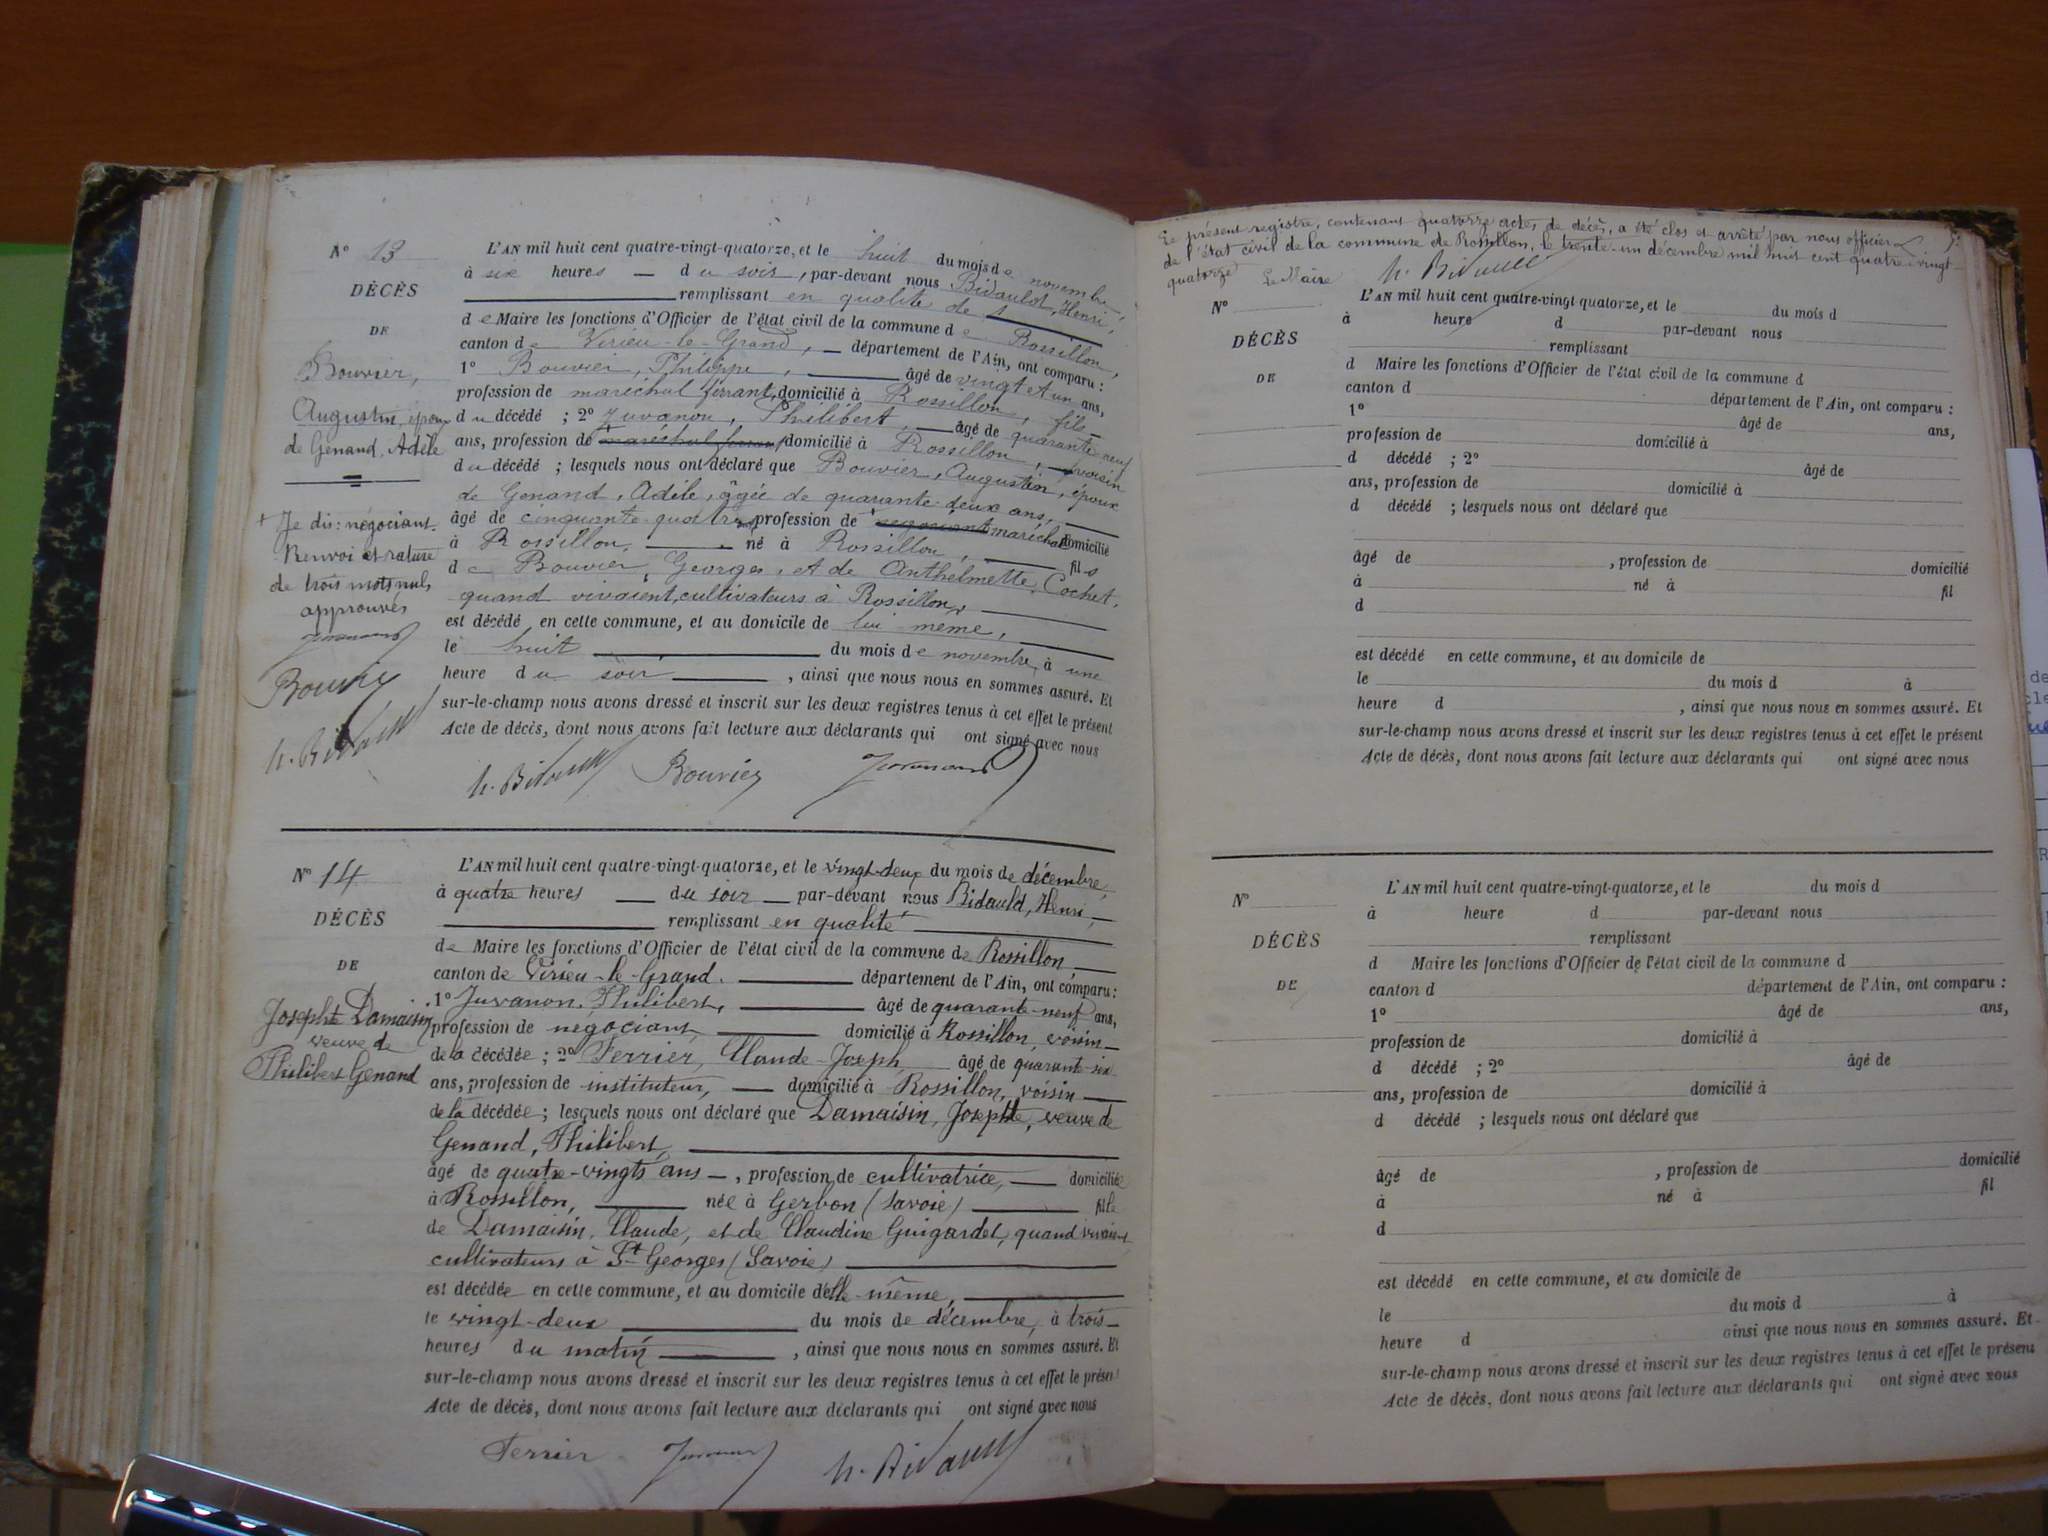 N° 13
DÉCÈS
DE
Bouvier,
Augustin, époux
de Genand, Adèle
+ Je dis: négociant.
Renvoi et rature
de trois mots nuls
approuvés
Bouvier
h. Bidault
L'AN mil huit cent quatre-vingt-quatorze, et le huit du mois de novembre,
à six heures — du soir, par-devant nous Bidauld, Henri,
remplissant en qualité de
de Maire les fonctions d'Officier de l'état civil de la commune de Rossillon,
canton de Virieu-le-Grand, — département de l'Ain, ont comparu :
1° Bouvier, Philippe, âgé de vingt et un ans,
profession de maréchal ferrant, domicilié à Rossillon, fils
du décédé ; 2° Juvanon, Philibert, — âgé de quarante neuf
ans, profession de maréchal ferrant domicilié à Rossillon, voisin
du décédé ; lesquels nous ont déclaré que Bouvier, Augustin, époux
de Genand, Adèle, âgée de quarante-deux ans,
âgé de cinquante-quatre ans, profession de négociant maréchal domicilié
à Rossillon, né à Rossillon, fils
de Bouvier, Georges, et de Anthelmette Cochet,
quand vivaient, cultivateurs à Rossillon,
est décédé en cette commune, et au domicile de lui même,
le huit du mois de novembre, à une
heure du soir, ainsi que nous nous en sommes assuré. Et
sur-le-champ nous avons dressé et inscrit sur les deux registres tenus à cet effet le présent
Acte de décès, dont nous avons fait lecture aux déclarants qui ont signé avec nous
h. Bidault Bouvier Juvanon
N° 14
DÉCÈS
DE
Josephte Damaisin,
veuve de
Philibert Genand
L'AN mil huit cent quatre-vingt-quatorze, et le vingt-deux du mois de décembre,
à quatre heures — du soir — par-devant nous Bidauld, Henri, —
remplissant en qualité
de Maire les fonctions d'Officier de l'état civil de la commune de Rossillon,
canton de Virieu-le-Grand. département de l'Ain, ont comparu :
1° Juvanon, Philibert, âgé de quarante-neuf ans,
profession de négociant, domicilié à Rossillon, voisin —
de la décédée ; 2° Ferrier, Claude-Joseph, âgé de quarante-six
ans, profession de instituteur, — domicilié à Rossillon, voisin —
de la décédée ; lesquels nous ont déclaré que Damaisin, Josephte, veuve de
Genand, Philibert,
âgé de quatre-vingts ans —, profession de cultivatrice, — domiciliée
à Rossillon, née à Gerbon (Savoie) fille
de Damaisin, Claude, et de Claudine Guigardet, quand vivaient
cultivateurs à St Georges (Savoie)
est décédée en cette commune, et au domicile d'elle-même,
le vingt-deux du mois de décembre, à trois —
heures du matin, ainsi que nous nous en sommes assuré. Et
sur-le-champ nous avons dressé et inscrit sur les deux registres tenus à cet effet le présent
Acte de décès, dont nous avons fait lecture aux déclarants qui ont signé avec nous
Ferrier Juvanon h. Bidault
Le présent registre, contenant quatorze actes de décès, a été clos et arrêté par nous officier
de l'état civil de la commune de Rossillon, le trente-un décembre mil huit cent quatre-vingt-
quatorze Le Maire h. Bidault
N°
DÉCÈS
DE
L'AN mil huit cent quatre-vingt-quatorze, et le du mois d
à heure d par-devant nous
remplissant
d Maire les fonctions d'Officier de l'état civil de la commune d
canton d département de l'Ain, ont comparu :
1° âgé de ans,
profession de domicilié à
d décédé ; 2° âgé de
ans, profession de domicilié à
d décédé ; lesquels nous ont déclaré que
âgé de , profession de domicilié
à né à fil
d
est décédé en cette commune, et au domicile de
le du mois d à
heure d , ainsi que nous nous en sommes assuré. Et
sur-le-champ nous avons dressé et inscrit sur les deux registres tenus à cet effet le présent
Acte de décès, dont nous avons fait lecture aux déclarants qui ont signé avec nous
N°
DÉCÈS
DE
L'AN mil huit cent quatre-vingt-quatorze, et le du mois d
à heure d par-devant nous
remplissant
d Maire les fonctions d'Officier de l'état civil de la commune d
canton d département de l'Ain, ont comparu :
1° âgé de ans,
profession de domicilié à
d décédé ; 2° âgé de
ans, profession de domicilié à
d décédé ; lesquels nous ont déclaré que
âgé de , profession de domicilié
à né à fil
d
est décédé en cette commune, et au domicile de
le du mois d à
heure d ainsi que nous nous en sommes assuré. Et
sur-le-champ nous avons dressé et inscrit sur les deux registres tenus à cet effet le présent
Acte de décès, dont nous avons fait lecture aux déclarants qui ont signé avec nous